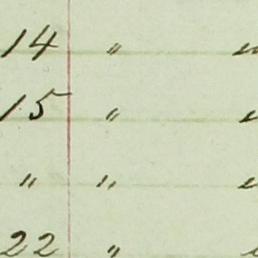 14 "
15 "
" "
22 "